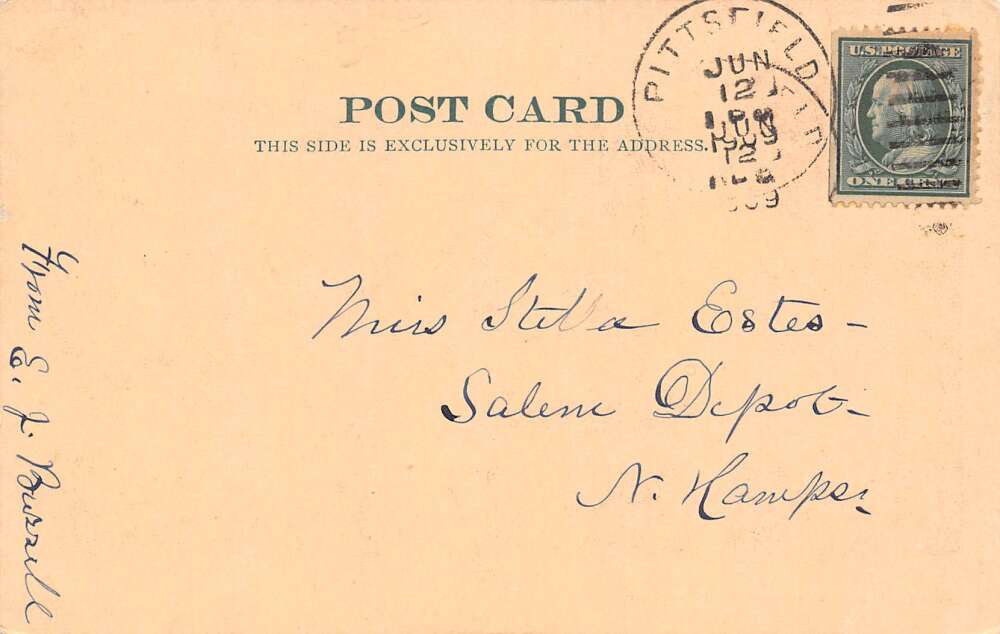 POST CARD
THIS SIDE IS EXCLUSIVELY FOR THE ADDRESS.
PITTSFIELD
JUN
12
JUN
12
U.S. POSTAGE
ONE CENT
Miss Stella Estes -
Salem Depot -
N. Hamps.
From E. J. Buzzell